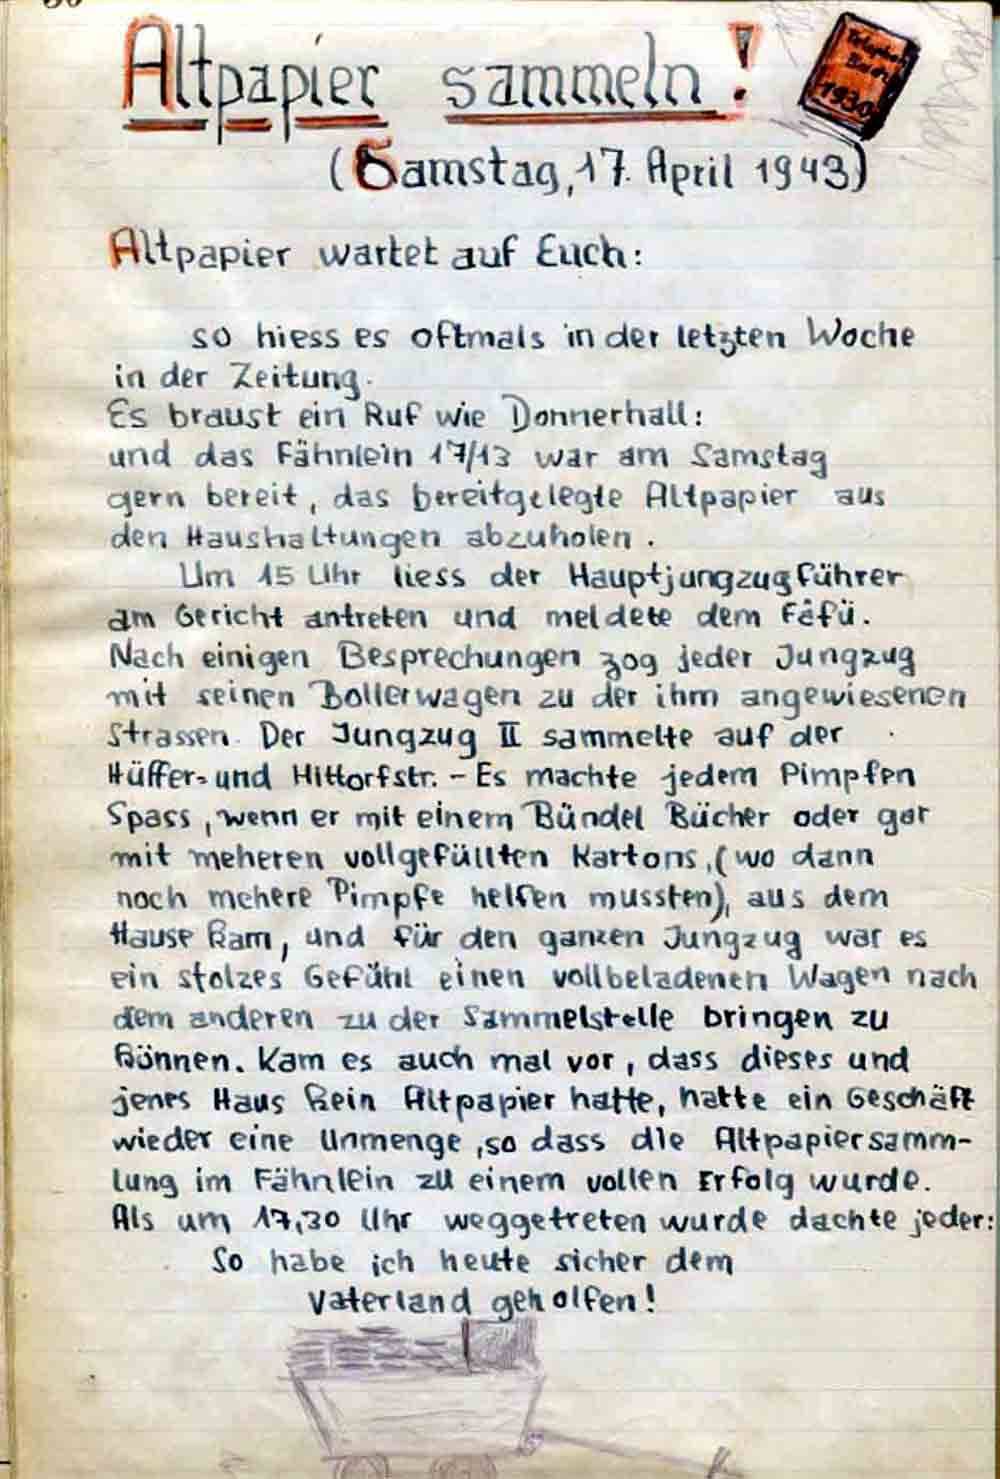 Altpapier sammeln!
Telephon
Buch
1930
(Samstag, 17. April 1943)
Altpapier wartet auf Euch:
so hiess es oftmals in der letzten Woche
in der Zeitung.
Es braust ein Ruf wie Donnerhall:
und das Fähnlein 17/13 war am Samstag
gern bereit, das bereitgelegte Altpapier aus
den Haushaltungen abzuholen.
Um 15 Uhr liess der Hauptjungzugführer
am Gericht antreten und meldete dem Fäfü.
Nach einigen Besprechungen zog jeder Jungzug
mit seinen Bollerwagen zu der ihm angewiesenen
Strassen. Der Jungzug II sammelte auf der
Hüffer- und Hittorfstr. – Es machte jedem Pimpfen
Spass, wenn er mit einem Bündel Bücher oder gar
mit meheren vollgefüllten Kartons, (wo dann
noch mehere Pimpfe helfen mussten), aus dem
Hause kam, und für den ganzen Jungzug war es
ein stolzes Gefühl einen vollbeladenen Wagen nach
dem anderen zu der Sammelstelle bringen zu
können. Kam es auch mal vor, dass dieses und
jenes Haus kein Altpapier hatte, hatte ein Geschäft
wieder eine Unmenge, so dass die Altpapiersamm-
lung im Fähnlein zu einem vollen Erfolg wurde.
Als um 17,30 Uhr weggetreten wurde dachte jeder:
So habe ich heute sicher dem
Vaterland geholfen!